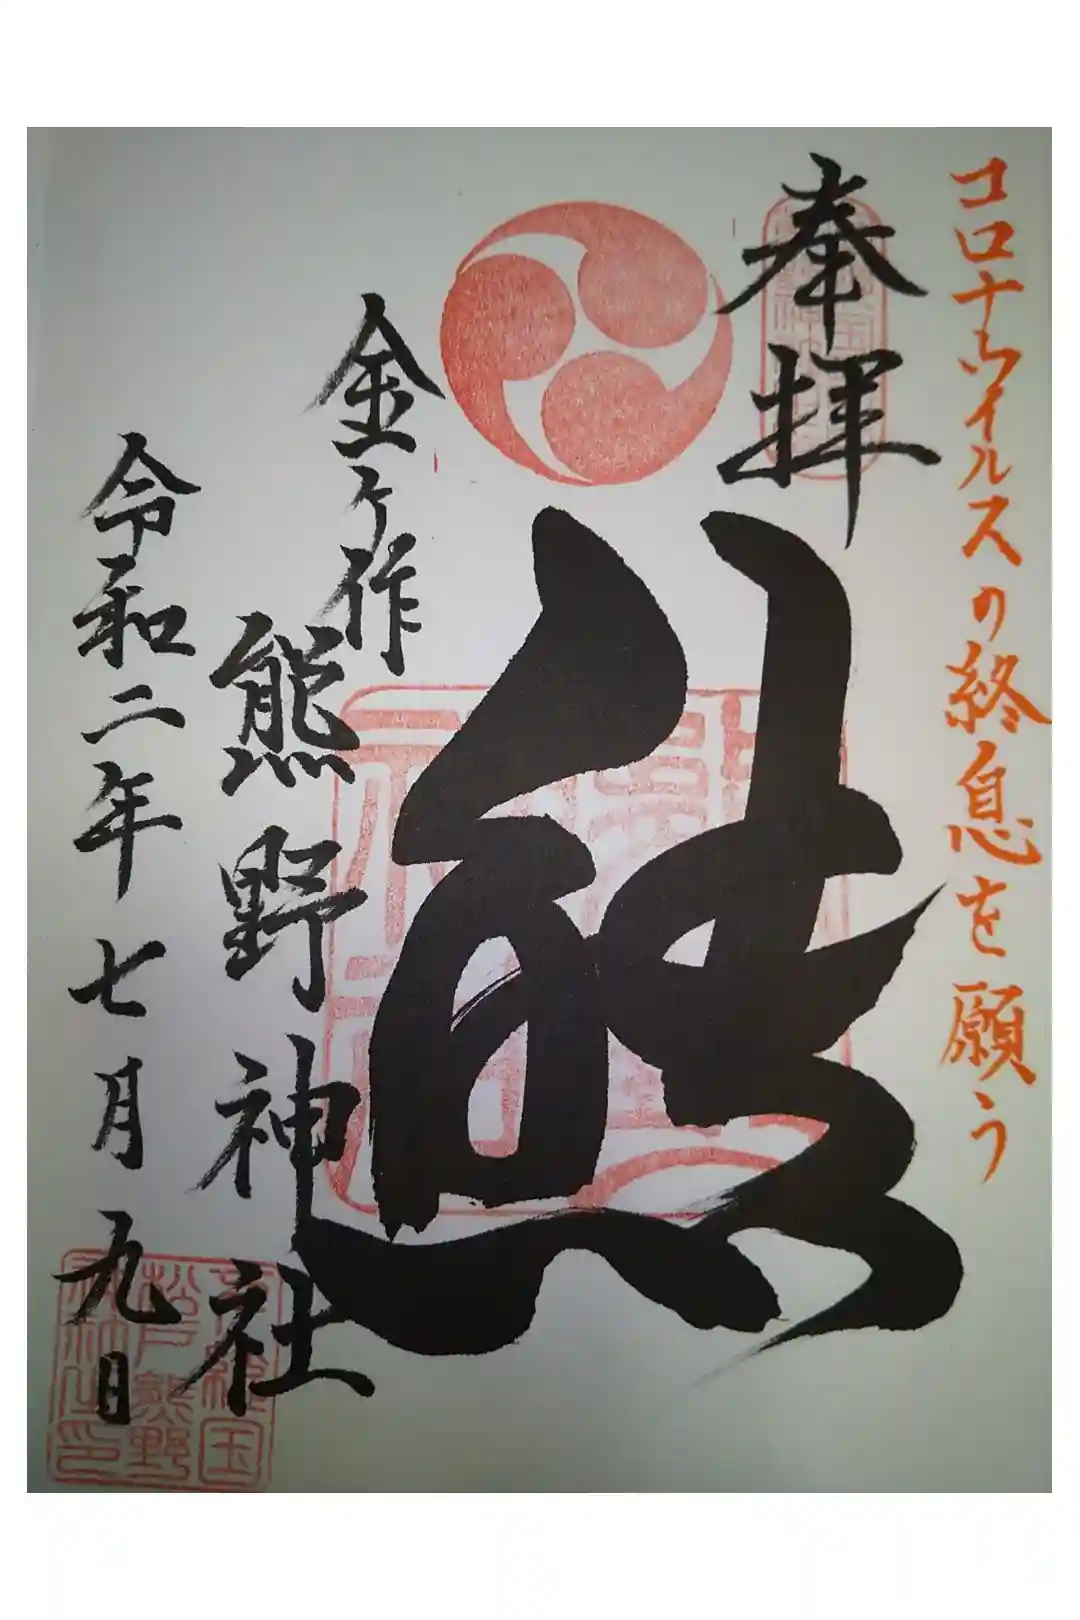 コロナウイルスの終息を願う
奉拝
熊
金ケ作
熊野神社
令和二年七月九日
松戸熊野